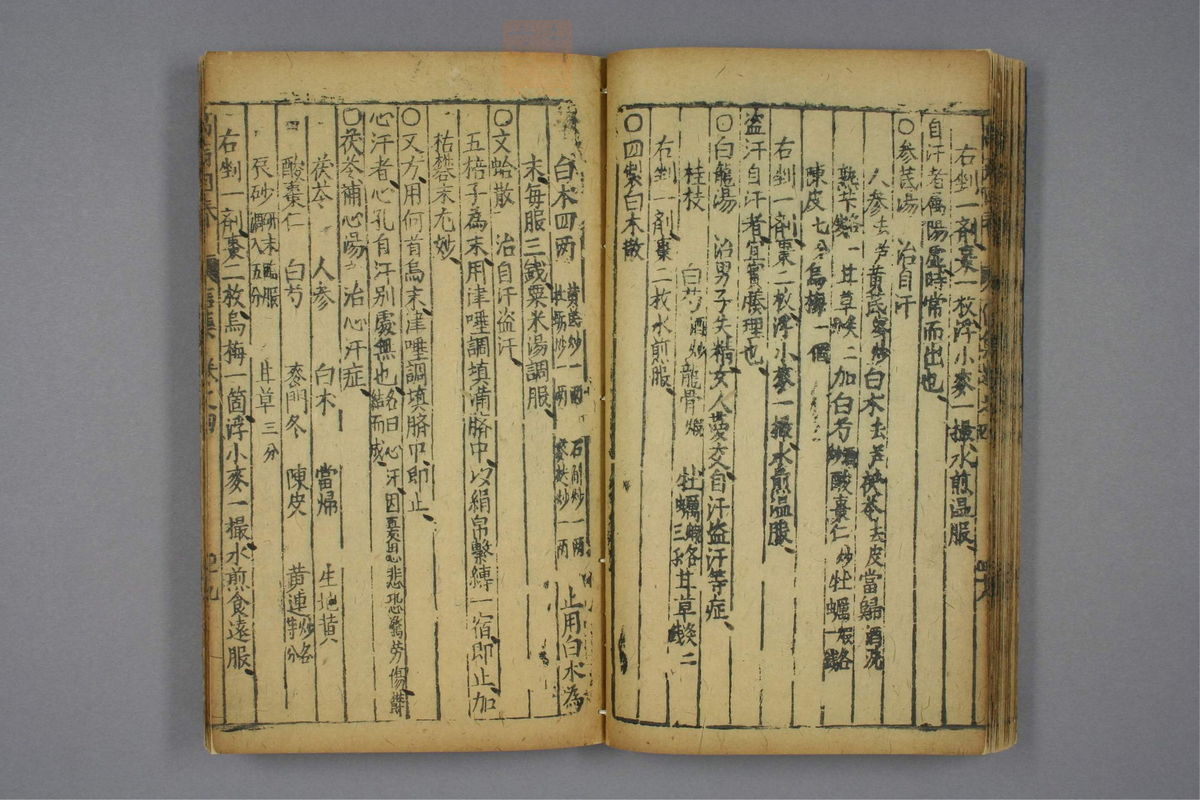 右剉一剤棗一枚浮小麥一撮水煎温服
自汗者属陽虚時常而出也
○參芪湯 治自汗
人參去芦 黄芪蜜炒 白朮去芦 茯苓去皮 當歸酒洗
熟芐各一錢 甘草炙二分 加白芍酒炒 酸棗仁炒 牡蠣煅各一錢
陳皮七分 烏梅一個
右剉一剤棗二枚浮小麥一撮水煎温服
盗汗自汗者宜實腠理也
○白龍湯 治男子失精女人夢交自汗盗汗等症
桂枝 白芍酒炒 龍骨煅 牡蠣煅各三錢 甘草炙二錢
右剉一剤棗二枚水煎服
○四製白朮散
白朮四两 黄芪炒一两 石斛炒一两 牡蠣炒一两 麥麸炒一两 止用白朮為
末每服三錢粟米湯調服
○文蛤散 治自汗盗汗
五棓子為末用津唾調填満臍中以絹帛繫縛一宿即止加
枯礬末尤妙
○又方用何首烏末津唾調填臍中即止
心汗者心孔自汗别處無也名曰心汗因憂思悲恐驚勞傷鬱結而成
○茯苓補心湯 治心汗症
茯苓 人參 白朮 當歸 生地黄
酸棗仁 白芍 麥門冬 陳皮 黄連炒各等分
辰砂研末臨服調入五分 甘草三分
右剉一剤棗二枚烏梅一箇浮小麥一撮水煎食遠服